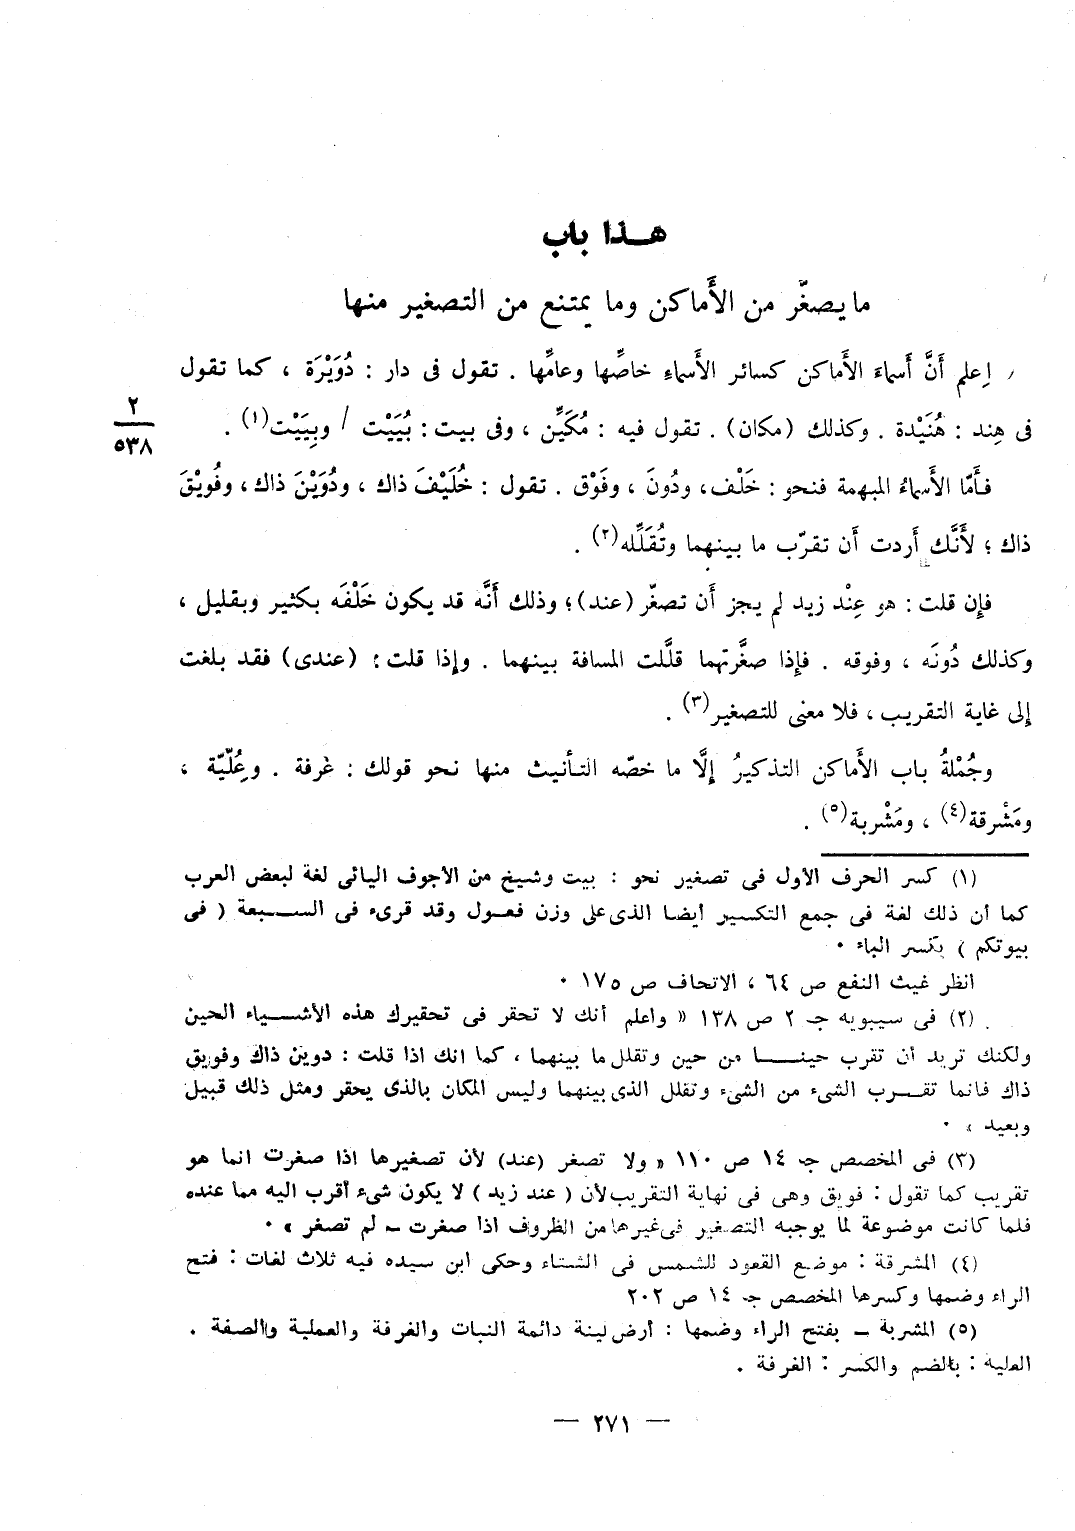 هـــذا باب
ما يصغّر من الأَماكن وما يمتنع من التصغير منها
اِعلم أَنَّ أَسماءَ الأَماكن كسائر الأَسماءِ خاصِّها وعامِّها . تقول فى دار : دُوَيْرَة ، كما تقول
فى هِند : هُنَيْدة . وكذلك (مكان) . تقول فيه : مُكَيِّن ، وفى بيت : بُيَيْت / وبِيَيْت(١) .
٢
٥٣٨
فأَمّا الأَسماءُ المبهمة فنحو : خَلْف، ودُونَ ، وفَوْق . تقول : خُلَيْفَ ذاك ، ودُوَيْنَ ذاك، وفُويْقَ
ذاك ؛ لأَنَّك أَردت أَن تقرّب ما بينهما وتُقَلِّله(٢) .
فإِن قلت : هو عِنْد زيد لم يجز أَن تصغّر (عند)؛ وذلك أَنَّه قد يكون خَلْفَه بكثير وبقليل ،
وكذلك دُونَه ، وفوقه . فإِذا صغَّرتهما قلَّلت المسافة بينهما . وإِذا قلت : (عندى) فقد بلغت
إِلى غاية التقريب ، فلا معنى للتصغير(٣) .
وجُمْلةُ باب الأَماكن التذكيرُ إِلَّا ما خصّه التأنيث منها نحو قولك : غرفة . وعِلُّيّة ،
ومَشْرقة(٤) ، ومَشْربة(٥) .
(١) كسر الحرف الأول فى تصغير نحو : بيت وشيخ من الأجوف اليائى لغة لبعض العرب
كما أن ذلك لغة فى جمع التكسير أيضا الذى على وزن فعـول وقد قرىء فى الســـبعة ( فى
بيوتكم ) بكسر الباء ٠
انظر غيث النفع ص ٦٤ ، الاتحاف ص ١٧٥ ٠
(٢) فى سيبويه جـ ٢ ص ١٣٨ « واعلم أنك لا تحقر فى تحقيرك هذه الأشـــياء الحين
ولكنك تريد أن تقرب حينـــا من حين وتقلل ما بينهما ، كما انك اذا قلت : دوين ذاك وفويق
ذاك فانما تقـــرب الشىء من الشىء وتقلل الذى بينهما وليس المكان بالذى يحقر ومثل ذلك قبيل
وبعيد » ٠
(٣) فى المخصص جـ ١٤ ص ١١٠ « ولا تصغر (عند) لأن تصغيرها اذا صغرت انما هو
تقريب كما تقول : فويق وهى فى نهاية التقريب لأن ( عند زيد ) لا يكون شىء أقرب اليه مما عنده
فلما كانت موضوعة لما يوجبه التصغير فى غيرها من الظروف اذا صغرت – لم تصغر » ٠
(٤) المشرقة : موضع القعود للشمس فى الشتاء وحكى ابن سيده فيه ثلاث لغات : فتح
الراء وضمها وكسرها المخصص جـ ١٤ ص ٢٠٢
(٥) المشربة – بفتح الراء وضمها : أرض لينة دائمة النبات والغرفة والعملية والصفة .
العلية : بالضم والكسر : الغرفة .
— ٢٧١ —